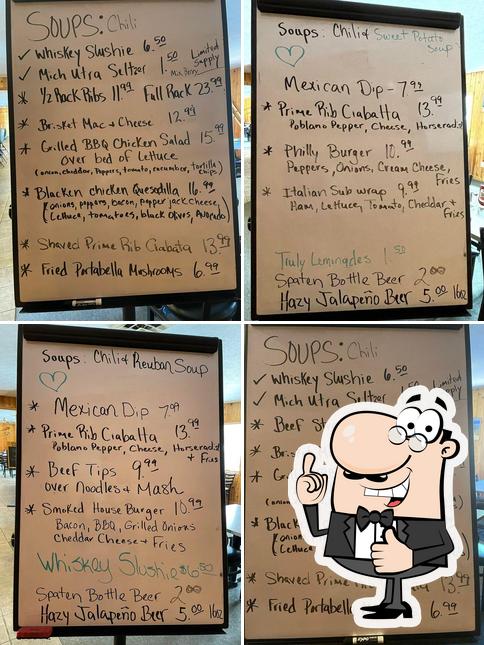 SOUPS: Chili
✓ Whiskey Slushie 6.50
✓ Mich Utra Seltzer 1.50 Limited Supply
Mix Berry
* 1/2 Rack Ribs 11.99 Full Rack 23.99
* Brisket Mac & Cheese 12.99
* Grilled BBQ Chicken Salad 15.99
over bed of Lettuce
(onion, cheddar, Peppers, tomato, cucumber, tortilla chips)
* Blacken chicken Quesadilla 16.99
(onions, peppers, bacon, pepper jack cheese,)
(Lettuce, tomatoes, black olives, Avocado)
* Shaved Prime Rib Ciabata 13.99
* Fried Portabella Mushrooms 6.99
Soups: Chili & Sweet Potato Soup
Mexican Dip - 7.99
* Prime Rib Ciabatta 13.99
Poblano Pepper, Cheese, Horserad
* Philly Burger 10.99
Peppers, Onions, Cream Cheese, Fries
* Italian Sub wrap 9.99
Ham, Lettuce, Tomato, Cheddar & Fries
Truly Lemonades 1.50
Spaten Bottle Beer 2.00
Hazy Jalapeño Beer 5.00 16oz
Soups: Chili & Reuban Soup
* Mexican Dip 7.99
* Prime Rib Ciabatta 13.99
Poblano Pepper, Cheese, Horserad
+ Fries
* Beef Tips 9.99
over Noodles & Mash
* Smoked House Burger 10.99
Bacon, BBQ, Grilled Onions
Cheddar Cheese & Fries
Whiskey Slushie $6.50
Spaten Bottle Beer 2.00
Hazy Jalapeño Beer 5.00 16oz
SOUPS: Chili
✓ Whiskey Slushie 6.50
✓ Mich Utra S 1.50 Limited Supply
* Beef St
* Bris
* Gr
(onion
* Black
(onions
(Lettuce
* Shaved Prime 13.99
* Fried Portabell 6.99